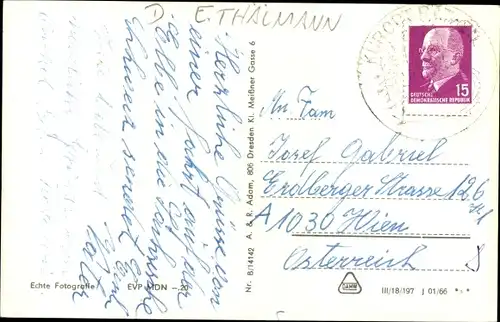 D E. THÄLMANN
Herzliche Grüsse von
einer Fahrt auf der
Elbe in die Sächsische
Schweiz sendet Euch
Vater
Echte Fotografie
EVP MDN –.20
Nr. B/14142 A. & R. Adam, 806 Dresden Kl. Meißner Gasse 6
KURORT
15
DEUTSCHE
DEMOKRATISCHE REPUBLIK
An Fam
Josef Gabriel
Erdberger Strasse 126
A 1030 Wien
Österreich
DAMW
III/18/197 J 01/66